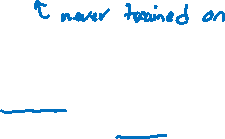 never trained on